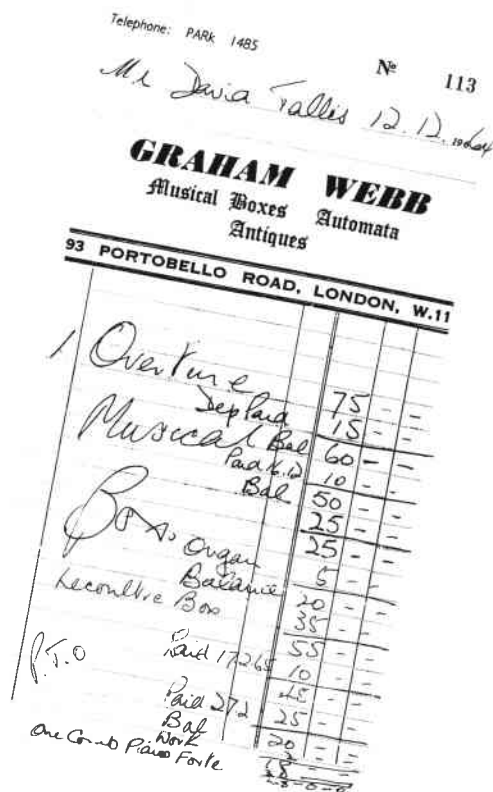 Telephone: PARK 1485
Nº 113
Mr David Tallis 12.12.1964
GRAHAM WEBB
Musical Boxes Automata
Antiques
93 PORTOBELLO ROAD, LONDON, W.11
1 Overture 75 - -
Dep Paid 15 - -
Musical Bal 60 - -
Paid 16.12 10 - -
Bal 50 - -
25 - -
Box. 25 - -
Organ 5 - -
Balance 20 - -
Lecoultre Box 35 - -
55 - -
P.T.O Paid 17265 10 - -
45 - -
Paid 272 25 - -
Bal 20 - -
Work
One Comb Piano Forte 18